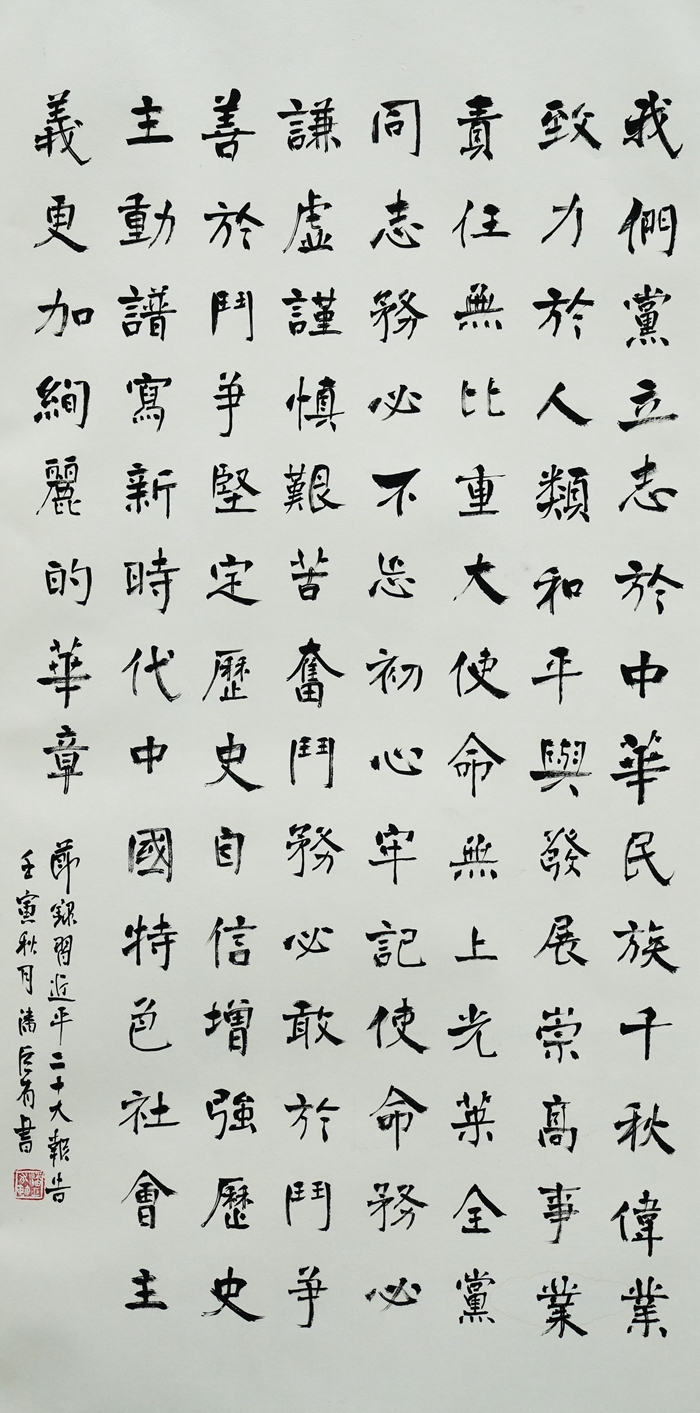 我們黨立志於中華民族千秋偉業
致力於人類和平與發展崇高事業
責任無比重大使命無上光榮全黨
同志務必不忘初心牢記使命務必
謙虛謹慎艱苦奮鬥務必敢於鬥爭
善於鬥爭堅定歷史自信增強歷史
主動譜寫新時代中國特色社會主
義更加絢麗的華章
節錄習近平二十大報告
壬寅秋月潘 書